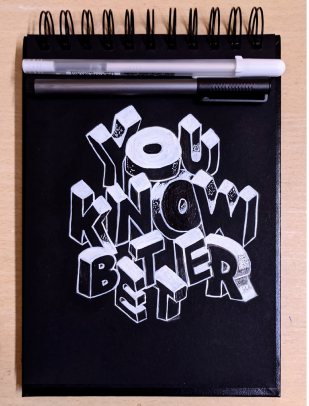 YOU
KNOW
BETTER